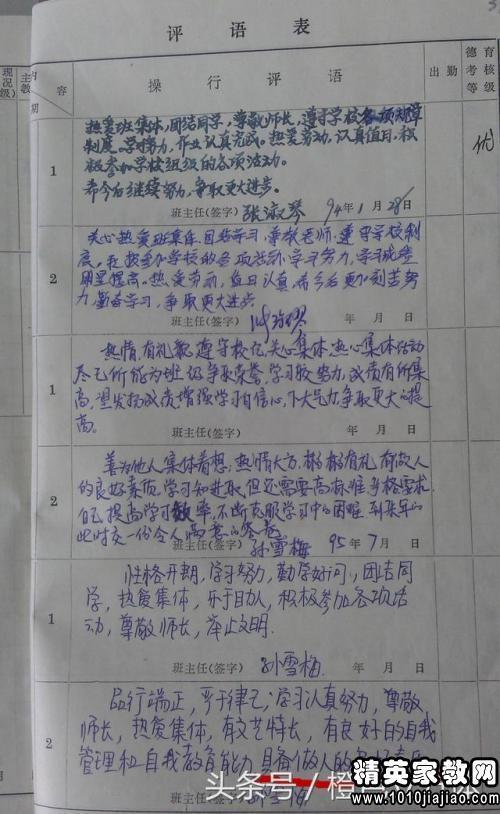 评语表
现况(级)
主教
内容
期
操行评语
出勤
德育考核等级
1
热爱班集体,团结同学,尊敬师长,遵守学校各项规章
制度。学习努力,作业认真完成。热爱劳动,认真值日,积
极参加学校组织的各项活动。
希今后继续努力,争取更大进步。
班主任(签字) 张淑琴 94年1月28日
优
2
关心热爱班集体,团结同学,尊敬老师,遵守学校制
度。积极参加学校的各项活动,学习努力,学习成绩
明显提高。热爱劳动,值日认真,希今后更加刻苦努
力,勤奋学习,争取更大进步
班主任(签字) 年 月 日
1
热情,有礼貌,遵守校纪,关心集体,热心集体活动
尽己所能为班级争取荣誉,学习较努力,成绩有所提
高,望发扬成绩,增强学习自信心,下大气力争取更大的提
高。
班主任(签字) 年 月 日
2
善为他人集体着想,热情大方,彬彬有礼,有做人
的良好素质,学习知进取,但还需要高标准严格要求
自己,提高学习效率,不断克服学习中的困难,到来年的
此时交一份令人满意的答卷
班主任(签字) 孙雪梅 95年7月 日
1
性格开朗,学习努力,勤学好问,团结同
学,热爱集体,乐于助人,积极参加各项活
动,尊敬师长,举止文明
班主任(签字) 孙雪梅 年 月 日
2
品行端正,严于律己,学习认真努力,尊敬
师长,热爱集体,有文艺特长,有良好的自我
管理和自我教育能力,具备做人的
班主任(签字)
头条号/橙
精英家教网
www.1010jiajiao.com